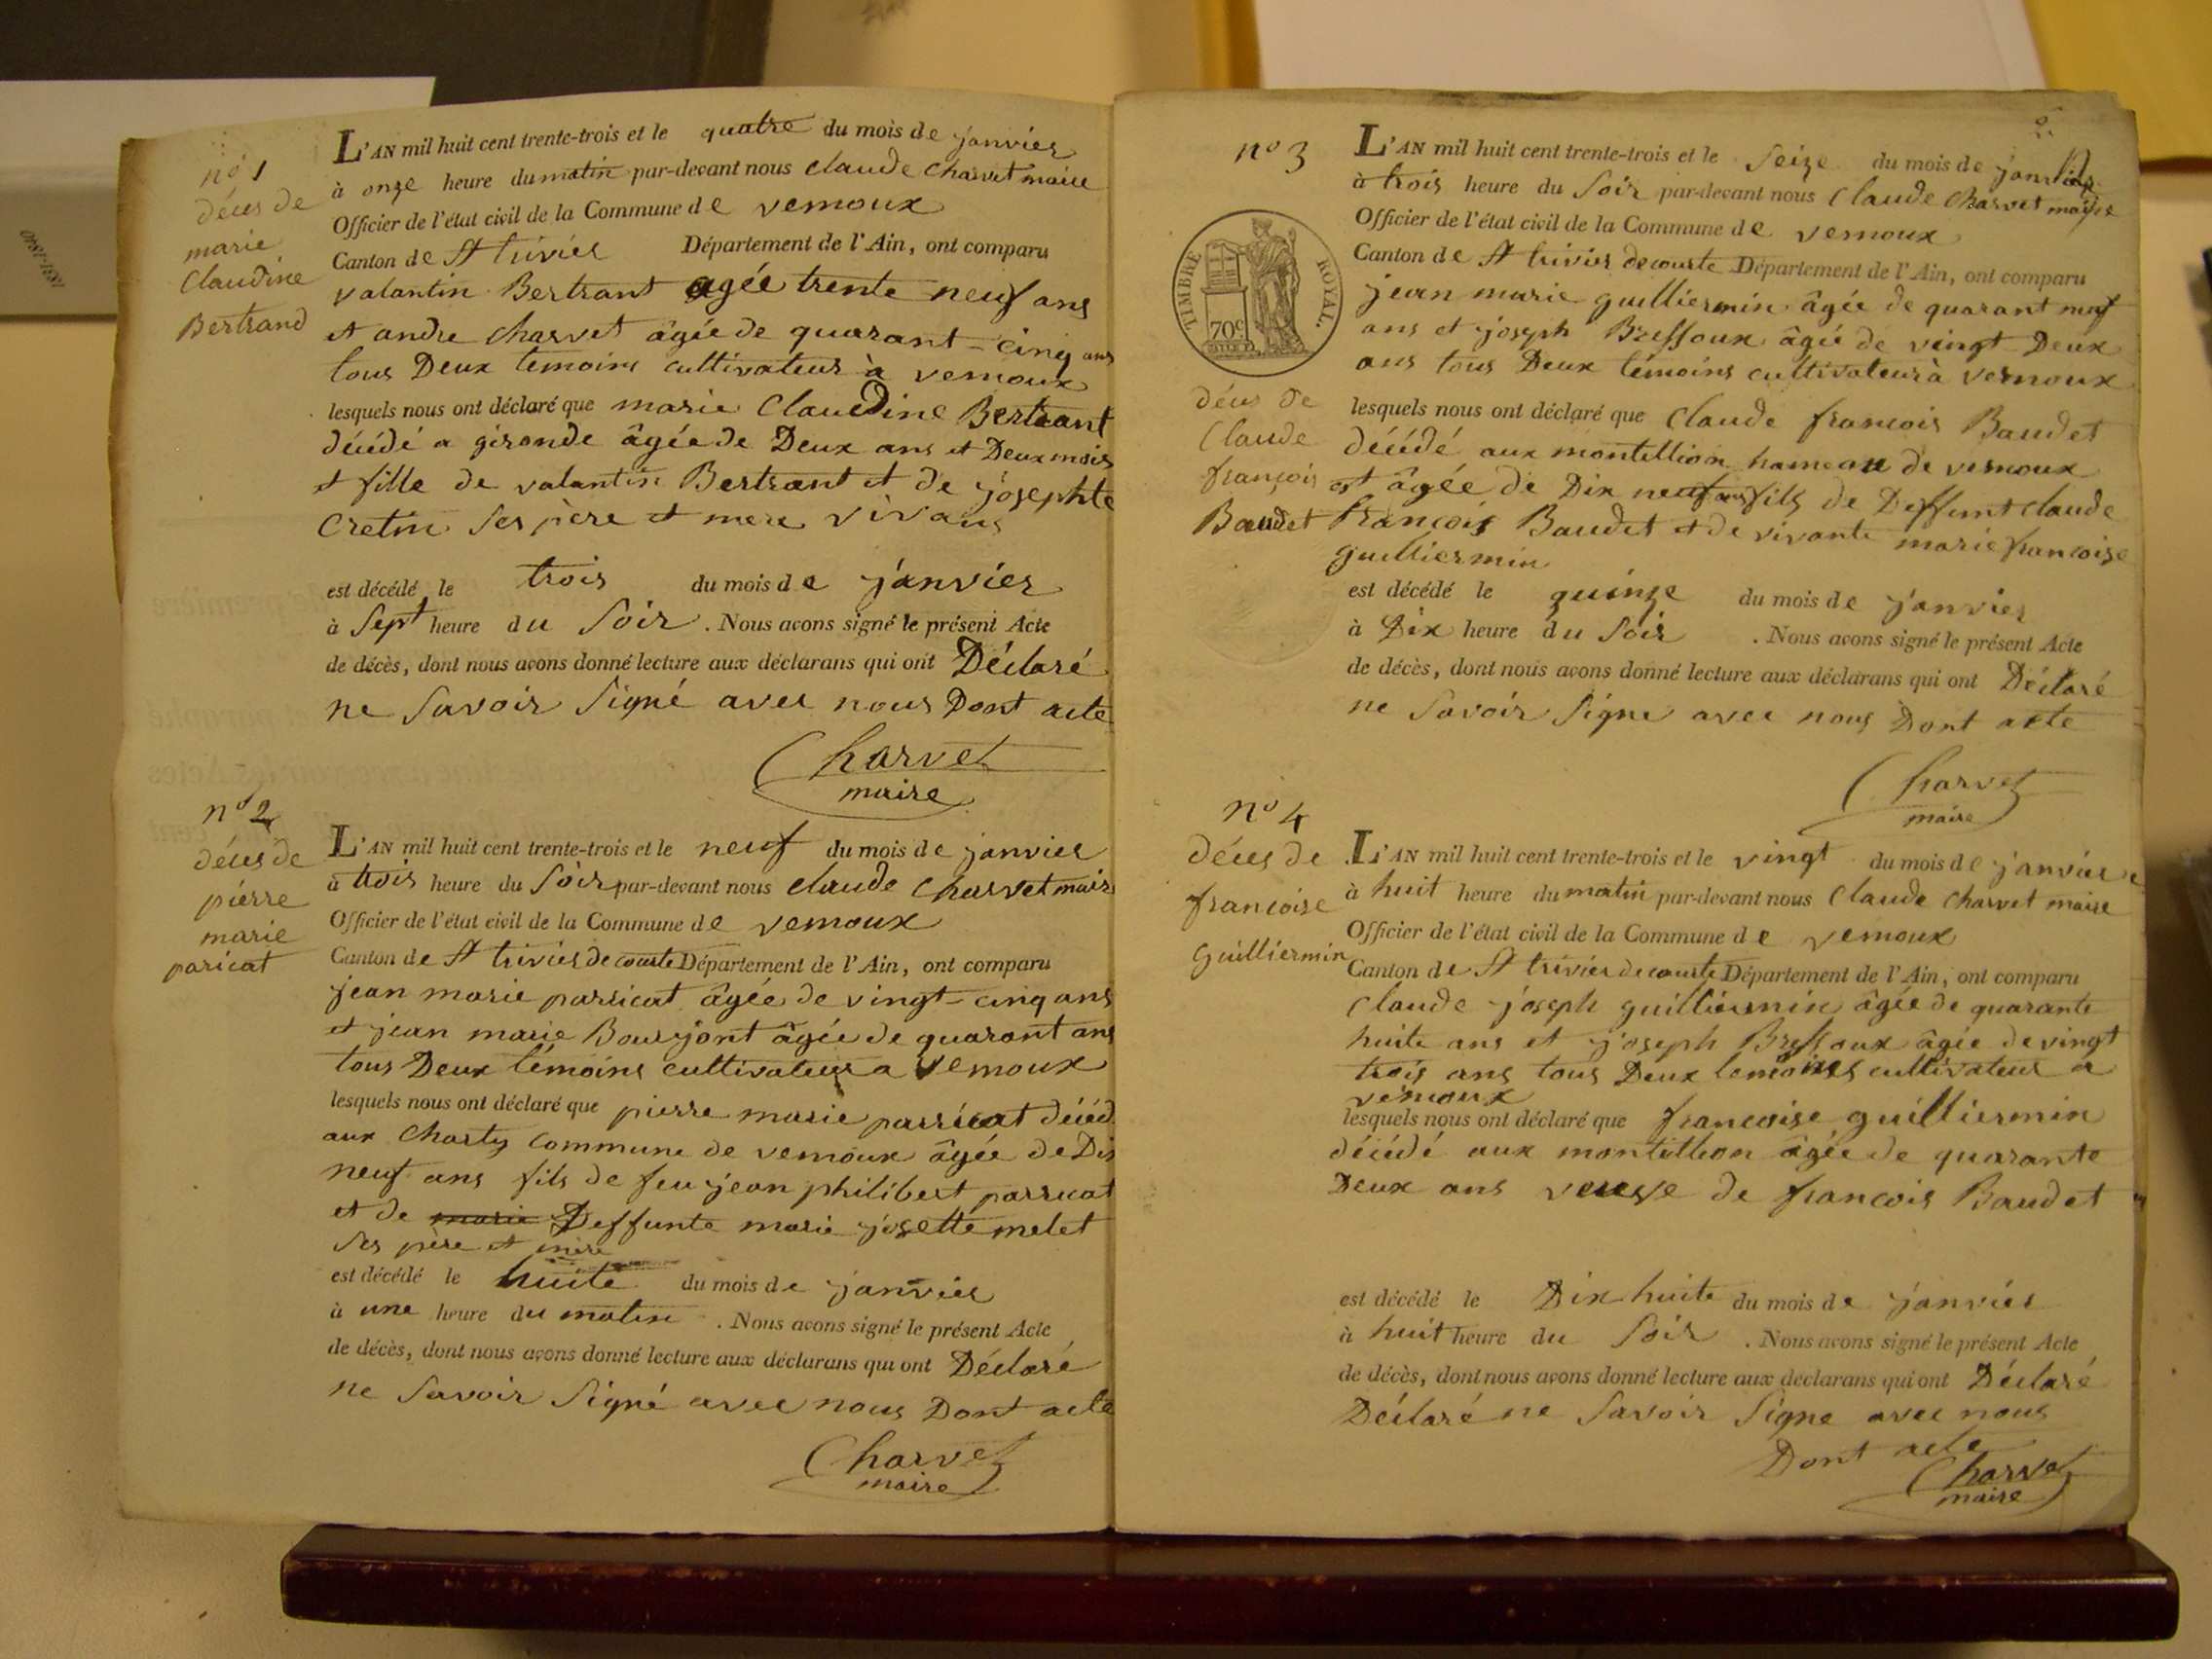 n° 1
décès de
marie
Claudine
Bertrand
L'AN mil huit cent trente-trois et le quatre du mois de janvier
à onze heure du matin par-devant nous claude Charvet maire
Officier de l'état civil de la Commune de vernoux
Canton de St trivier Département de l'Ain, ont comparu
valantin Bertrant agée trente neuf ans
et andre Charvet âgée de quarant-cinq ans
tous Deux temoins cultivateurs à vernoux
lesquels nous ont déclaré que marie Claudine Bertrant
décédé a gironde âgée de Deux ans et Deux mois
et fille de valantin Bertrant et de josephte
Cretin ses père et mere vivans
est décédé le trois du mois de janvier
à Sept heure du Soir. Nous avons signé le présent Acte
de décès, dont nous avons donné lecture aux déclarans qui ont Déclaré
ne Savoir Signé avec nous Dont acte
Charvet
maire
n° 2
décès de
pierre
marie
paricat
L'AN mil huit cent trente-trois et le neuf du mois de janvier
à trois heure du Soir par-devant nous claude Charvet maire
Officier de l'état civil de la Commune de vernoux
Canton de St trivier de courte Département de l'Ain, ont comparu
jean marie parricat âgée de vingt-cinq ans
et jean marie Bourjont âgée de quarant ans
tous Deux témoins cultivateurs a vernoux
lesquels nous ont déclaré que pierre marie parricat décéd
aux Charty commune de vernoux âgée de Dix
neuf ans fils de feu jean philibert parricat
et de marie Deffunte marie josette melet
Ses père et mère
est décédé le huite du mois de janvier
à une heure du matin. Nous avons signé le présent Acte
de décès, dont nous avons donné lecture aux déclarans qui ont Déclaré
ne Savoir Signé avec nous Dont acte
Charvet
maire
2.
n° 3
TIMBRE ROYAL.
70c
décès de
Claude
françois
Baudet
L'AN mil huit cent trente-trois et le Seize du mois de janvier
à trois heure du Soir par-devant nous Claude Charvet maire
Officier de l'état civil de la Commune de vernoux
Canton de St trivier de courte Département de l'Ain, ont comparu
jean marie guilliermin âgée de quarant neuf
ans et joseph Bressoux âgée de vingt-Deux
ans tous Deux témoins cultivateurs à vernoux
lesquels nous ont déclaré que Claude francois Baudet
décédé aux montillion hameau de vernoux
est âgée de Dix neuf ans fils de Deffunt claude
francois Baudet et de vivante marie francoise
guilliermin
est décédé le quinze du mois de janvier
à Dix heure du Soir. Nous avons signé le présent Acte
de décès, dont nous avons donné lecture aux déclarans qui ont Déclaré
ne Savoir Signe avec nous Dont acte
Charvet
maire
n° 4
décès de
francoise
Guilliermin
L'AN mil huit cent trente-trois et le vingt du mois de janvier
à huit heure du matin par-devant nous Claude Charvet maire
Officier de l'état civil de la Commune de vernoux
Canton de St trivier de courte Département de l'Ain, ont comparu
Claude joseph guilliermin âgée de quarante
huite ans et joseph Bressoux âgée de vingt
trois ans tous Deux temoines cultivateur a
vernoux
lesquels nous ont déclaré que francoise guilliermin
décédé aux montillion âgée de quarante
Deux ans veuve de francois Baudet
est décédé le Dix huite du mois de janvier
à huit heure du Soir. Nous avons signé le présent Acte
de décès, dont nous avons donné lecture aux declarans qui ont Déclaré
Déclaré ne Savoir Signe avec nous
Dont acte
Charvet
maire